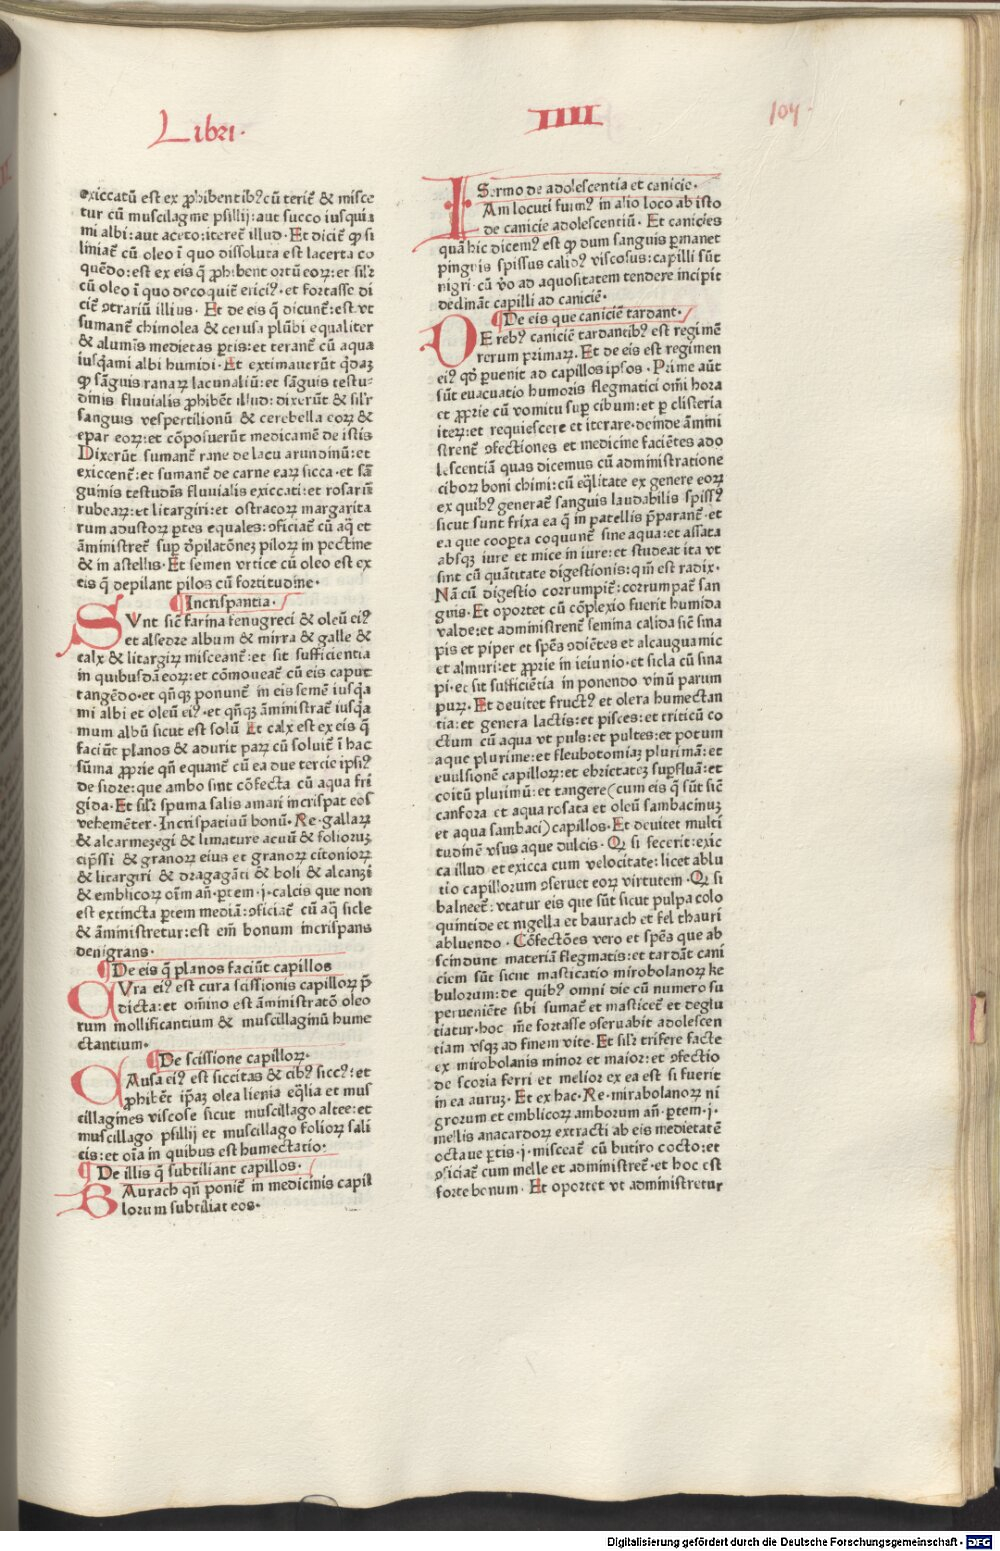 Libri·
IIII
104·
exiccatū est ex ꝓhibentibꝰ cū teriť & misce
tur cū muscilagine psillij: aut succo iusquia
mi albi: aut aceto: itereť illud· Et diciť ꝙ si
liniať cū oleo ī quo dissoluta est lacerta co
quēdo: est ex eis q̄ ꝓhibent ortū eoꝝ: et silꝛ
cū oleo ī quo decoquiť ericiꝰ· et fortasse di
ciť ɔtrariū illius· Et de eis q̄ dicunť: est· vt
sumanť chimolea & cerusa plūbi equaliter
& aluminis medietas ꝑtis: et teranť cū aqua
iusq̄ami albi humidi· Et extimauerūt q̇daꝫ
ꝙ sāguis ranaꝝ lacunaliū: et sāguis testu-
dinis fluuialis ꝓhibēt illud: dixerūt & silꝛ
sanguis vespertilionū & cerebella eoꝝ &
epar eoꝝ: et cōposuerūt medicamē de istis
Dixerūt sumanť rane de lacu arundinū: et
exiccenť: et sumanť de carne eaꝝ sicca· et sā
guinis testudīs fluuialis exiccati: et rosariꝫ
rubeaꝝ: et litargiri: et ostracoꝝ margarita
rum adustoꝝ ꝑtes equales: ɔficiať cū aq̄ et
āministreť suꝑ dꝑilatōneꝫ piloꝝ in pectine
& in astellis· Et semen vrtice cū oleo est ex
eis q̄ depilant pilos cū fortitudine·
Incrispantia·
SVnt sicť farina fenugreci & oleū eiꝰ
et alsedre album & mirra & galle &
calx & litargiꝝ misceanť: et sit sufficientia
in quibusdā eoꝝ: et cōmoueať cū eis caput
tangēdo· et qn̄qꝫ ponunť in eis semē iusq̄a
mi albi et oleū eiꝰ· et qn̄qꝫ āministrať iusq̄a
mum albū sicut est solū Et calx est ex eis q̄
faciūt planos & adurit paꝝ cū soluiť ī hac
sūma ꝓprie qn̄ equanť cū ea due tercie ipsiꝰ
de sidre: que ambo sint cōfecta cū aqua fri
gida· Et silꝛ spuma salis amari incrispat eos
vehemēter· Incrispatiuū bonū· Re· gallaꝝ
& alcarmezegi & limature acuū & folioruꝫ
cip̄ssi & granoꝝ eius et granoꝝ citonioꝝ
& litargiri & dragagāti & boli & alcanzi
& emblicoꝝ oīm añ· ꝑtem· j· calcis que non
est extincta ꝑtem mediā: ɔficiať cū aq̄ sicle
& āministretur: est em̄ bonum incrispans
denigrans·
De eis q̄ planos faciūt capillos
CVra eiꝰ est cura scissionis capilloꝝ p̄
dicta: et om̄ino est āministratō oleo
rum mollificantium & muscillaginū hume
ctantium·
De scissione capilloꝝ·
CAusa eiꝰ est siccitas & cibꝰ siccꝰ: et
ꝓhibēt ip̄aꝫ olea lienia eq̄lia et mus
cillagines viscose sicut muscillago altee: et
muscillago psillij et muscillago folioꝝ sali
cis: et oīa in quibus est humectatio·
De illis q̄ subtiliant capillos·
BAurach qn̄ poniť in medicinis capil
lorum subtiliat eos·
Sermo de adolescentia et canicie·
IAm locuti fuimꝰ in alio loco ab isto
de canicie adolescentiū· Et canicies
quā hic dicemꝰ est ꝙ dum sanguis ꝑmanet
pinguis spissus calidꝰ viscosus: capilli sūt
nigri· cū v̊o ad aquositatem tendere incipit
declināt capilli ad caniciē·
De eis que caniciē tardant·
DE rebꝰ caniciē tardantibꝰ est regimē
rerum primaꝝ· Et de eis est regimen
eiꝰ qd̄ ꝑuenit ad capillos ipsos· Prime aūt
sūt euacuatio humoris flegmatici om̄i hora
et ꝓprie cū vomitu suꝑ cibum: et ꝑ clisteria
iteꝝ: et requiescere et iterare· deinde āmini
strenť ɔfectiones et medicine faciētes ado
lescentiā quas dicemus cū administratione
ciboꝝ boni chimi: cū eq̄litate ex genere eoꝝ
ex quibꝰ generať sanguis laudabilis spissꝰ
sicut sunt frixa ea q̄ in patellis p̄paranť· et
ea que cooꝑta coquunť sine aqua: et assata
absqꝫ iure et mice in iure: et studeat ita vt
sint cū quātitate digestionis: qm̄ est radix·
Nā cū digestio corrumpiť: corrumpať san
guis· Et oportet cū cōplexio fuerit humida
valde: et administrenť semina calida sicť sina
pis et piper et spēs ɔdiētes et alcaugiamic
et almuri: et ꝓprie in ieiunio· et sicla cū sina
pi· et sit sufficiētia in ponendo vinū parum
puꝝ· Et deuitet fructꝰ et olera humectan
tia: et genera lactis: et pisces: et triticū co
ctum cū aqua vt puls: et pultes: et potum
aque plurime: et fleubotomiaꝫ plurimā: et
euulsionē capilloꝝ: et ebrietateꝫ suꝑfluā: et
coitū plurimū: et tangere (cum eis q̄ sūt sicť
canfora et aqua rosata et oleū sambacinuꝫ
et aqua sambaci) capillos· Et deuitet multi
tudinē vsus aque dulcis· Qꝫ si fecerit: exic
ca illud et exicca cum velocitate: licet ablu
tio capillorum ɔseruet eoꝝ virtutem· Qꝫ si
balneeť: vtatur eis que sūt sicut pulpa colo
quintide et nigella et baurach et fel thauri
abluendo· Cōfectōes vero et spēs que ab
scindunt materiā flegmatis: et tardāt cani
ciem sūt sicut masticatio mirobolanoꝝ ke
bulorum: de quibꝰ omni die cū numero su
perueniēte sibi sumať et masticeť et deglu
tiatur· hoc m̄e fortasse ɔseruabit adolescen
tiam vsqꝫ ad finem vite· Et silꝛ trifere facte
ex mirobolanis minor et maior: et ɔfectio
de scoria ferri et melior ex ea est si fuerit
in ea auruꝫ· Et ex hac· Re· mirabolanoꝝ ni
grorum et emblicoꝝ amborum añ· ꝑtem· j·
mellis anacardoꝝ extracti ab eis medietatē
octaue ꝑtis· j· misceať cū butiro cocto: et
ɔficiať cum melle et administreť· et hoc est
forte bonum· Et oportet vt administretur
Digitalisierung gefördert durch die Deutsche Forschungsgemeinschaft - DFG